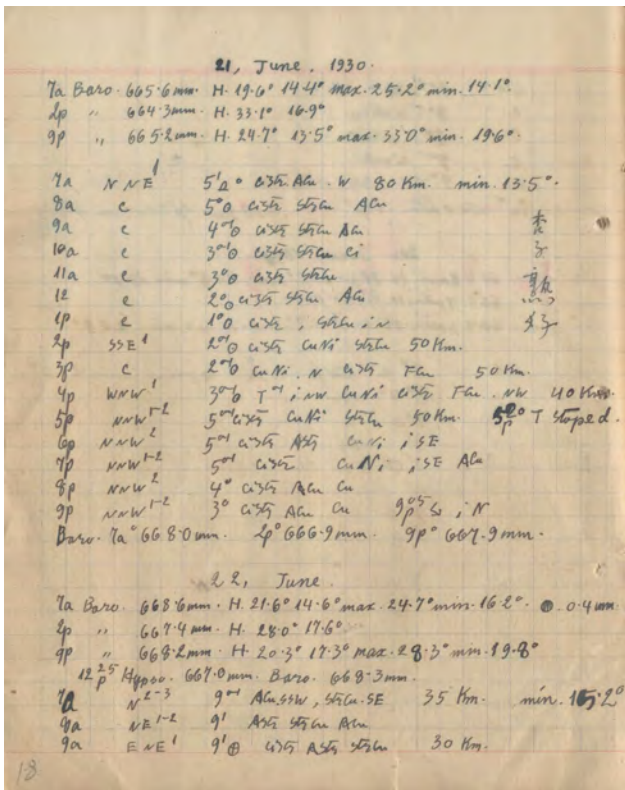 21, June. 1930.
7a Baro. 665.6mm. H. 19.6° 14.4° max. 25.2° min. 14.1°.
2p 〃 664.3mm. H. 33.1° 16.9°
9p 〃 665.2mm. H. 24.7° 13.5° max. 33.0° min. 19.6°.
7a NNE¹ cistr. Acu. W 80 Km. min. 13.5°.
8a c 5°⊙ cistr strcu Acu
9a c cistr strcu Acu 杏
10a c cistr strcu ci 子
11a c 3°⊙ cistr strcu 熟
12 c 2°⊙ cistr strcu Acu
1p c 1°⊙ cistr, strcu i N 好
2p SSE¹ cistr cuNi strcu 50 Km.
3p c cuNi. N cistr Fcu 50 Km.
4p WNW¹ i NW cuNi cistr Fcu. NW 40 Km.
5p NNW¹⁻² 5⁰⁻¹ cistr cuNi strcu 50 Km. T stoped.
6p NNW² 5⁰⁻¹ cistr Astr cuNi i SE
7p NNW¹⁻² 5⁰⁻¹ cistr cuNi i SE Acu
8p NNW² 4° cistr Acu Cu
9p NNW¹⁻² 3° cistr Acu Cu i N
Baro. 7a° 668.0mm. 2p° 666.9mm. 9p° 667.9mm.
22, June.
7a Baro. 668.6mm. H. 21.6° 14.6° max. 24.7° min. 16.2°. 0.4mm
2p 〃 667.4mm. H. 28.0° 17.6°
9p 〃 668.2mm. H. 20.3° 17.3° max. 28.3° min. 19.8°
12²⁵p Hypso. 667.0mm. Baro. 668.3mm.
7a N²⁻³ 9⁰⁻¹ Acu. SSW, strcu. SE 35 Km. min.
8a NE¹⁻² 9¹ Astr strcu Acu
9a ENE¹ 9¹⊕ cistr Astr strcu 30 Km.
18